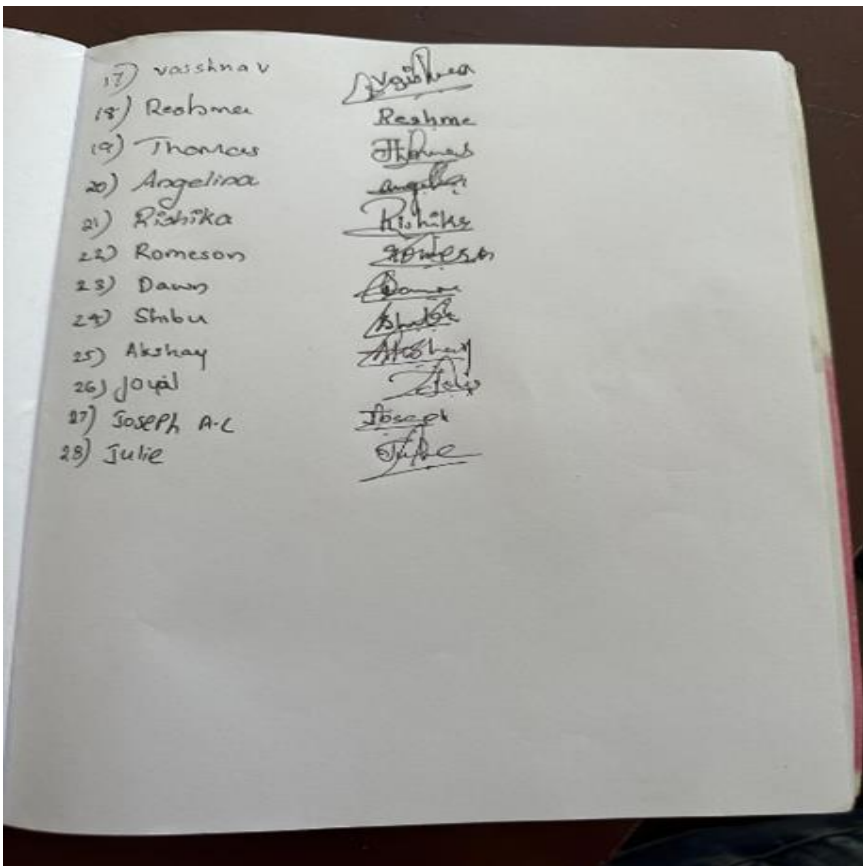 17) Vaishnav Vaishna
18) Reshma Reshme
19) Thomas Thomas
20) Angelina angelin
21) Rishika Rishika
22) Romeson Romeson
23) Dawn
24) Shibu Shibu
25) Akshay Akshay
26) Joyal
27) Joseph A.C Joseph
28) Julie Julie